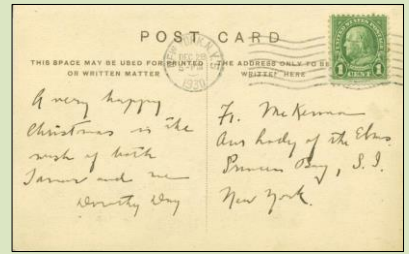 POST CARD
THIS SPACE MAY BE USED FOR PRINTED
OR WRITTEN MATTER
THE ADDRESS ONLY TO BE
WRITTEN HERE
DEC
1930
1 CENT 1
A very happy
Christmas is the
wish of both
and me
Dorothy Day
Fr. McKenna
Our Lady of the Elms
Princess Bay, S. I.
New York.